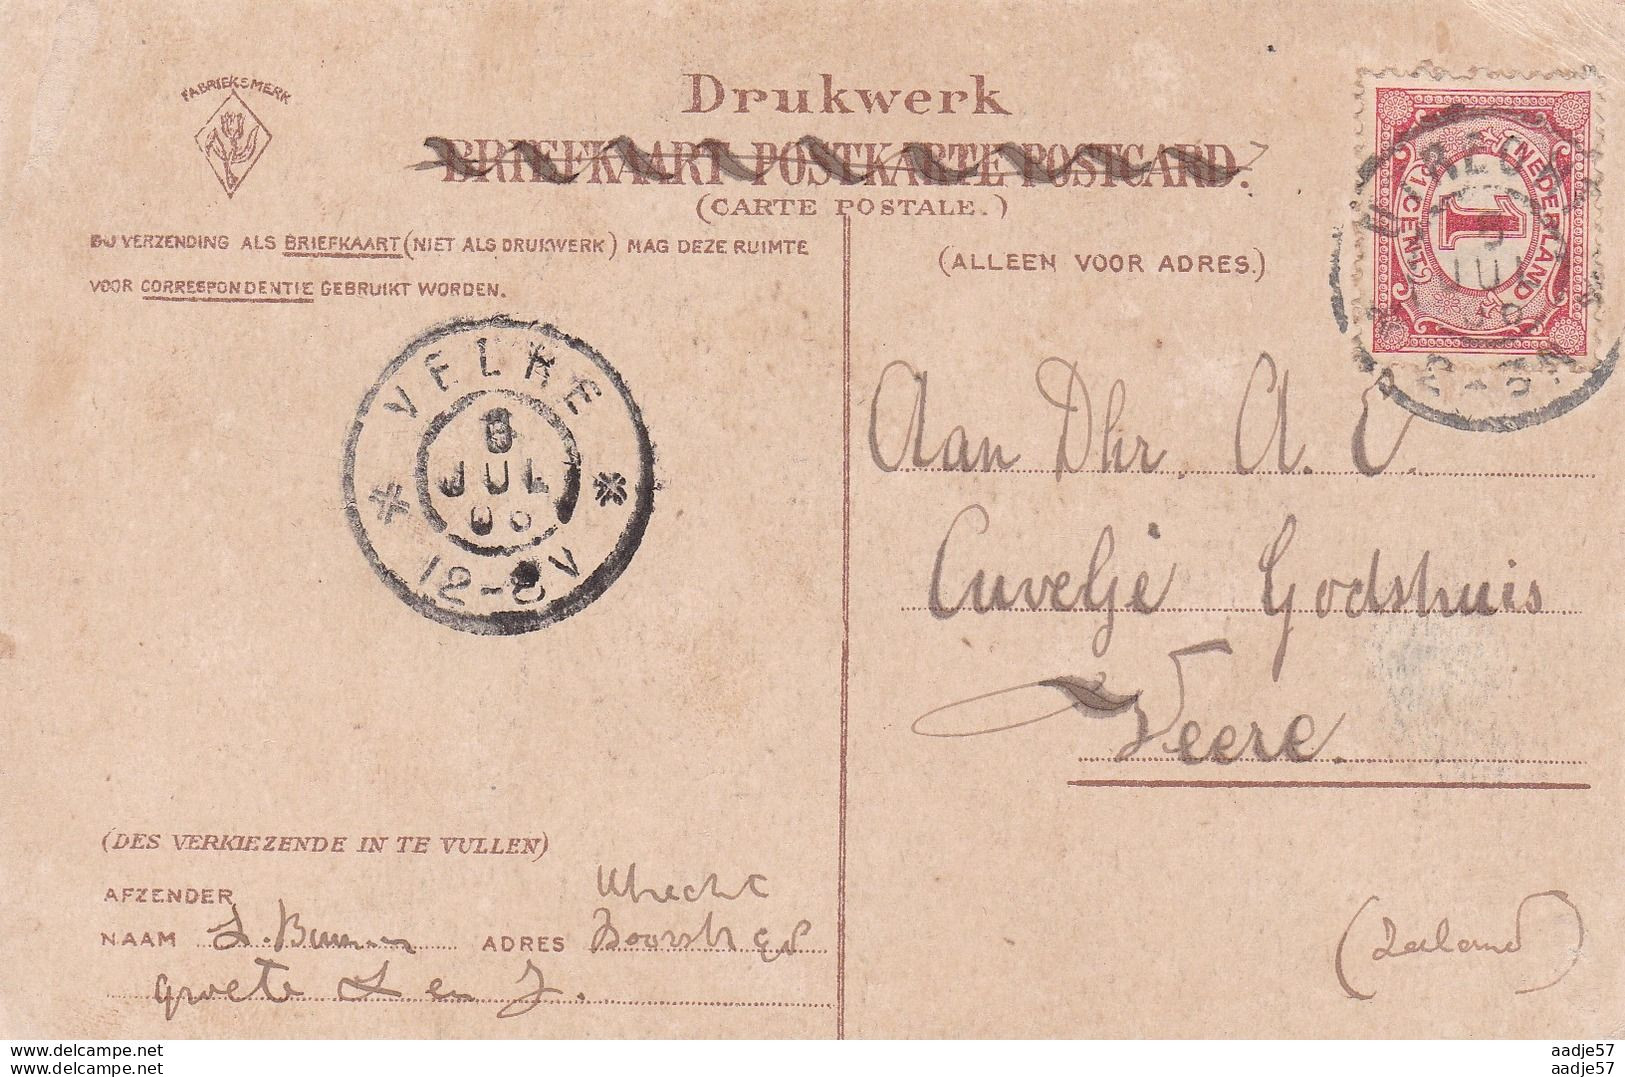 FABRIEKSMERK
Drukwerk
BRIEFKAART POSTKARTE POSTCARD.
(CARTE POSTALE.)
BIJ VERZENDING ALS BRIEFKAART (NIET ALS DRUKWERK) MAG DEZE RUIMTE
VOOR CORRESPONDENTIE GEBRUIKT WORDEN.
(ALLEEN VOOR ADRES.)
NEDERLAND
1
1 CENT
8
JUL
12-8V
Aan Dhr. A. C.
Cuvelje Godshuis
Veere.
(Zeeland)
(DES VERKIEZENDE IN TE VULLEN)
AFZENDER Utrecht
NAAM ADRES
groete L en J.
aadje57
aadje57